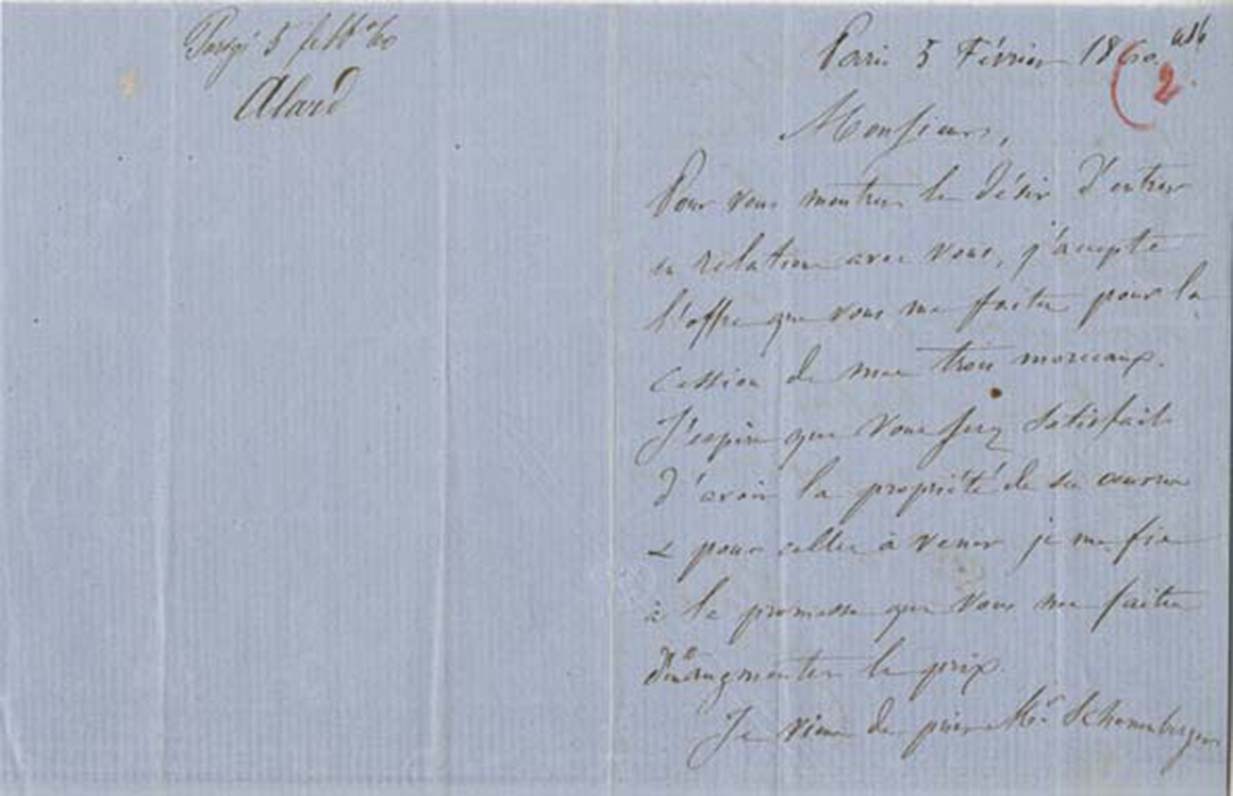 Parigi 5 febb° 60
Alard
Paris 5 Février 1860.
2
Monsieur,
Pour vous montrer le désir d'entrer
en relation avec vous, j'accepte
l'offre que vous me faites pour la
cession de mes trois morceaux.
J'espère que vous serez satisfait
d'avoir la propriété de ces œuvres
& pour celles à venir je me fie
à la promesse que vous me faites
d'en augmenter le prix.
Je viens de prier Mr. Schonenberger